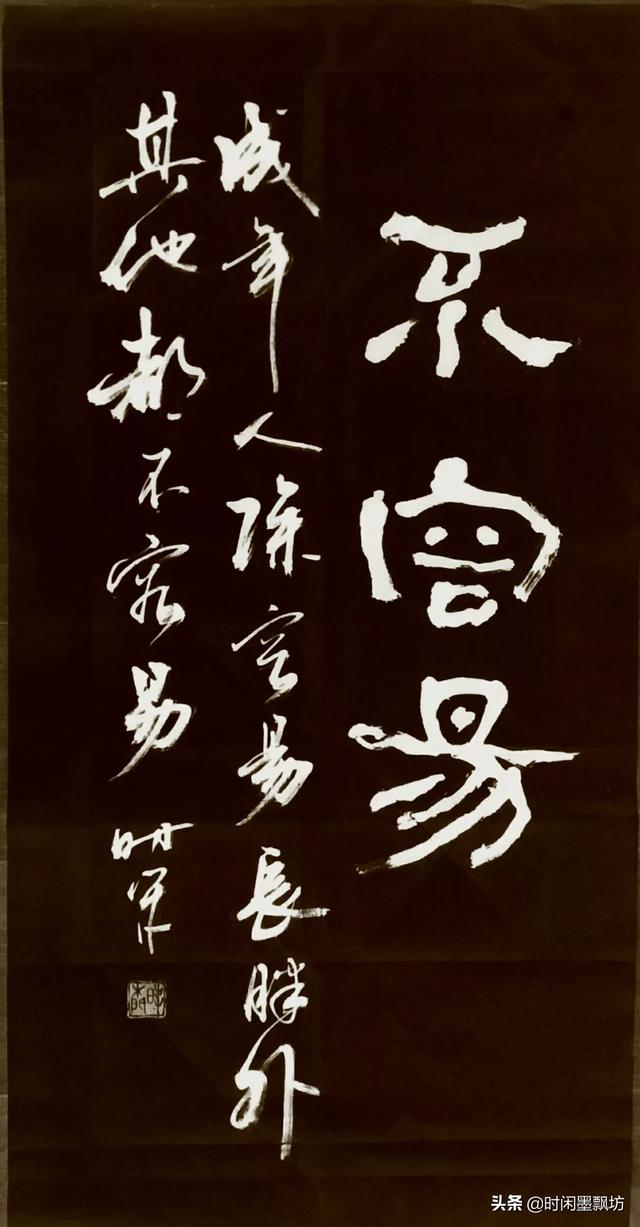 不容易
成年人除容易長胖外
其他都不容易
头条 @时闲墨飘坊